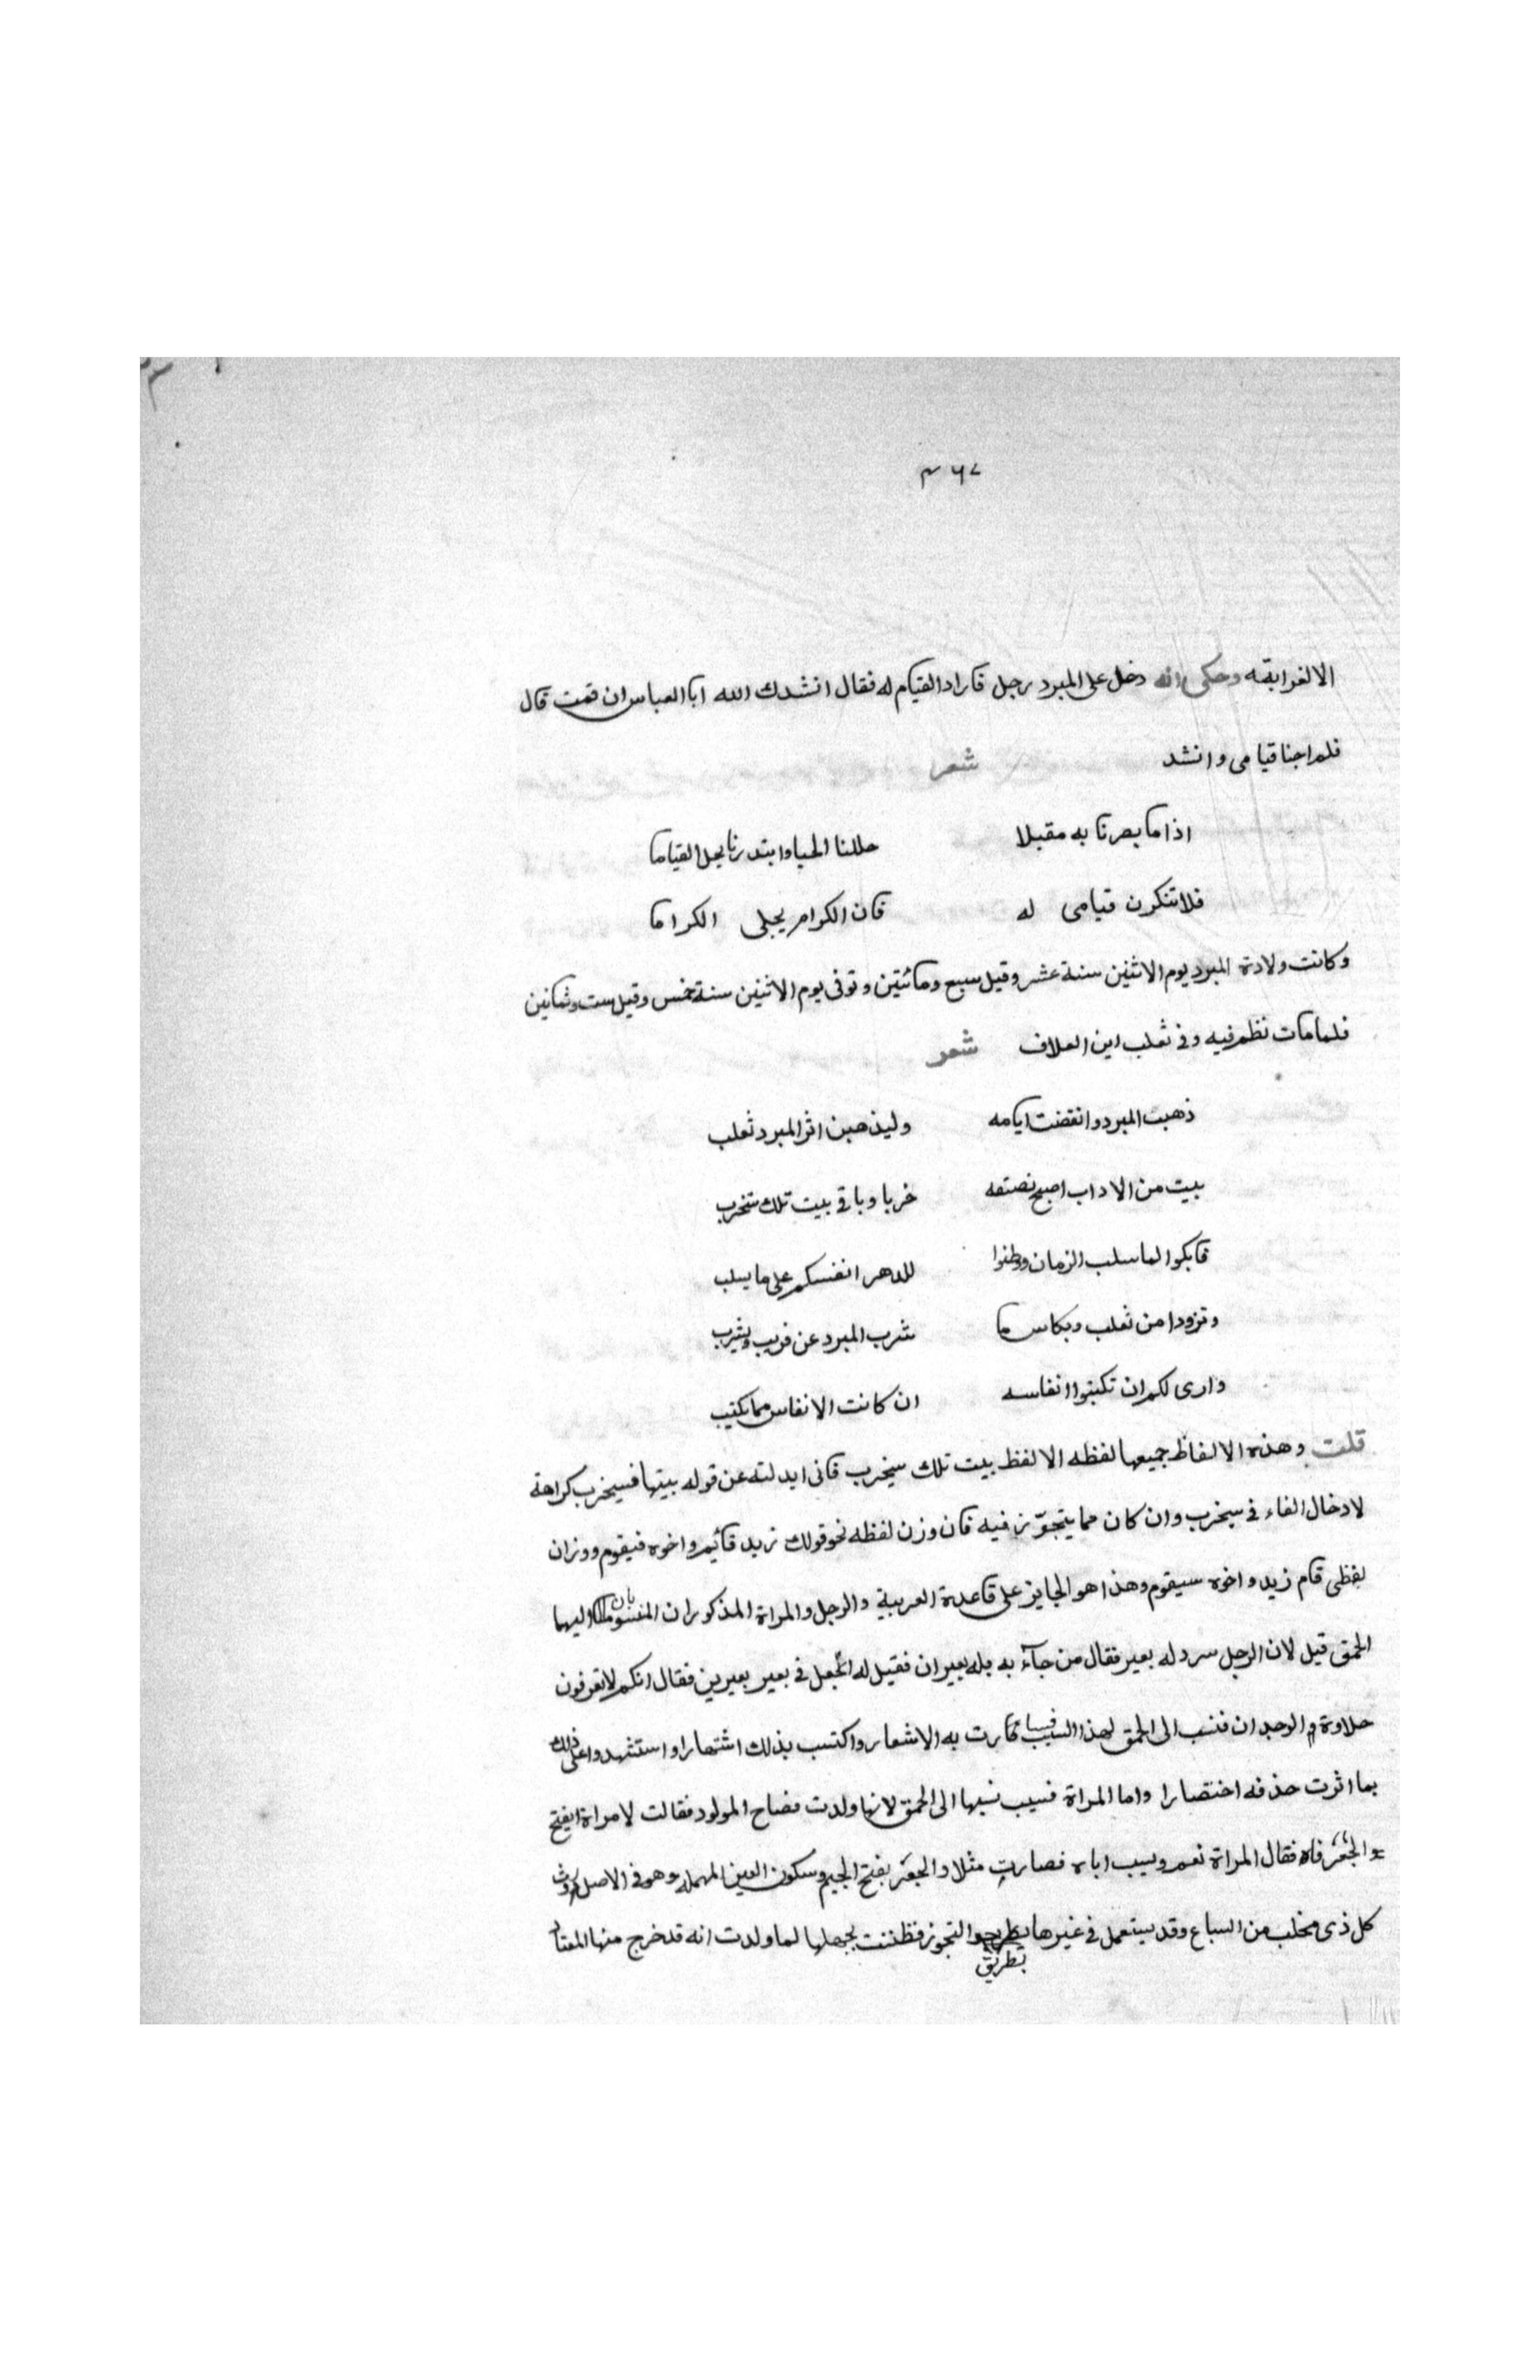 ٣٦٧
الا لغوا بقه وحكى انه دخل على المبرد رجل فاراد القيام له فقال انشدك الله ابا العباس ان قمت قال
فلم اجنا قيامى وانشد شعر
اذا ما بصرنا به مقبلا حللنا الحبا وابتدرنا القياما
فلا تنكرن قيامى له فان الكرام يجلى الكراما
وكانت ولادة المبرد يوم الاثنين سنة عشر وقيل سبع ومائتين وتوفى يوم الاثنين سنة خمس وقيل ست وثمانين
فلما مات نظم فيه وفى ثعلب ابن العلاف شعر
ذهبت المبرد وانقضت ايامه وليذهبن اثر المبرد ثعلب
بيت من الاداب اصبح نصفه خربا وباقى بيت تلك ستخرب
فابكوا لما سلب الزمان ووطنوا للدهر انفسكم على ما يسلب
وتزودا من ثعلب وبكاس ما شرب المبرد عن قريب يشرب
وارى لكم ان تكتبوا انفاسه ان كانت الانفاس مما يكتب
قلت وهذه الالفاظ جميعها لفظه الا لفظ بيت تلك سيخرب فانى ابدلته عن قوله بيتها فسيخرب كراهة
لادخال الفاء فى سيخرب وان كان مما يتجوّز فيه فان وزن لفظه نحو قولك زيد قائم واخوه فيقوم ووزان
لفظى قام زيد واخوه سيقوم وهذا هو الجايز على قاعدة العربية والرجل والمراة المذكوران المنسوبان اليهما
الحمق قيل لان الرجل سرد له بعير فقال من جآء به فله بعيران فقيل له اتجعل فى بعير بعيرين فقال انكم لا تعرفون
حلاوة الوجدان فنسب الى الحمق لهذا السبب فسارت به الاشعار واكتسب بذلك اشتهارا واستشهدوا على ذلك
بما اثرت حذفه اختصارا واما المراة فسبب نسبها الى الحمق لانها ولدت فصاح المولود فقالت لامراة ايفتح
الجعر فاه فقال المراة نعم ويسب اباه فصارت مثلا والجعر بفتح الجيم وسكون العين المهمله وهو فى الاصل روث
كل ذى مخلب من السباع وقد يستعمل فى غيرها بطريق التجوز فظننت بجهلها لما ولدت انه قد خرج منها المعتاد